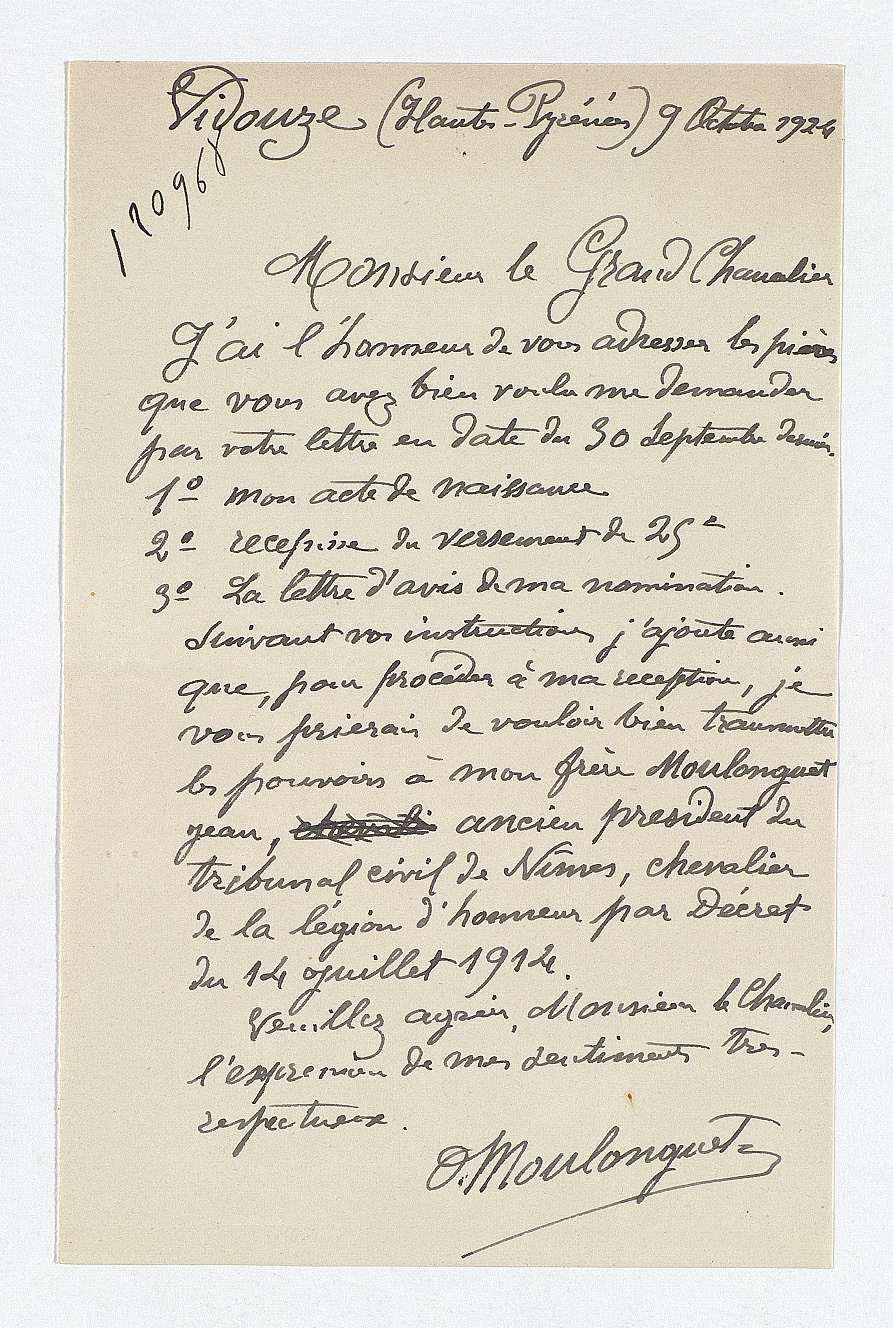 Vidouze (Hautes-Pyrénées) 9 Octobre 1924
120968
Monsieur le Grand Chancelier
J'ai l'honneur de vous adresser les pièces
que vous avez bien voulu me demander
par votre lettre en date du 30 Septembre dernier.
1º mon acte de naissance
2º recepisse du versement de 25 f
3º La lettre d'avis de ma nomination.
Suivant vos instructions j'ajoute aussi
que, pour procéder à ma reception, je
vous prierais de vouloir bien transmettre
les pouvoirs à mon frère Moulonguet
jean, ancien president du
tribunal civil de Nîmes, chevalier
de la légion d'honneur par Décret
du 14 juillet 1914.
Veuillez agréer, Monsieur le Chancelier,
l'expression de mes sentiments tres-
respectueux.
O. Moulonguet